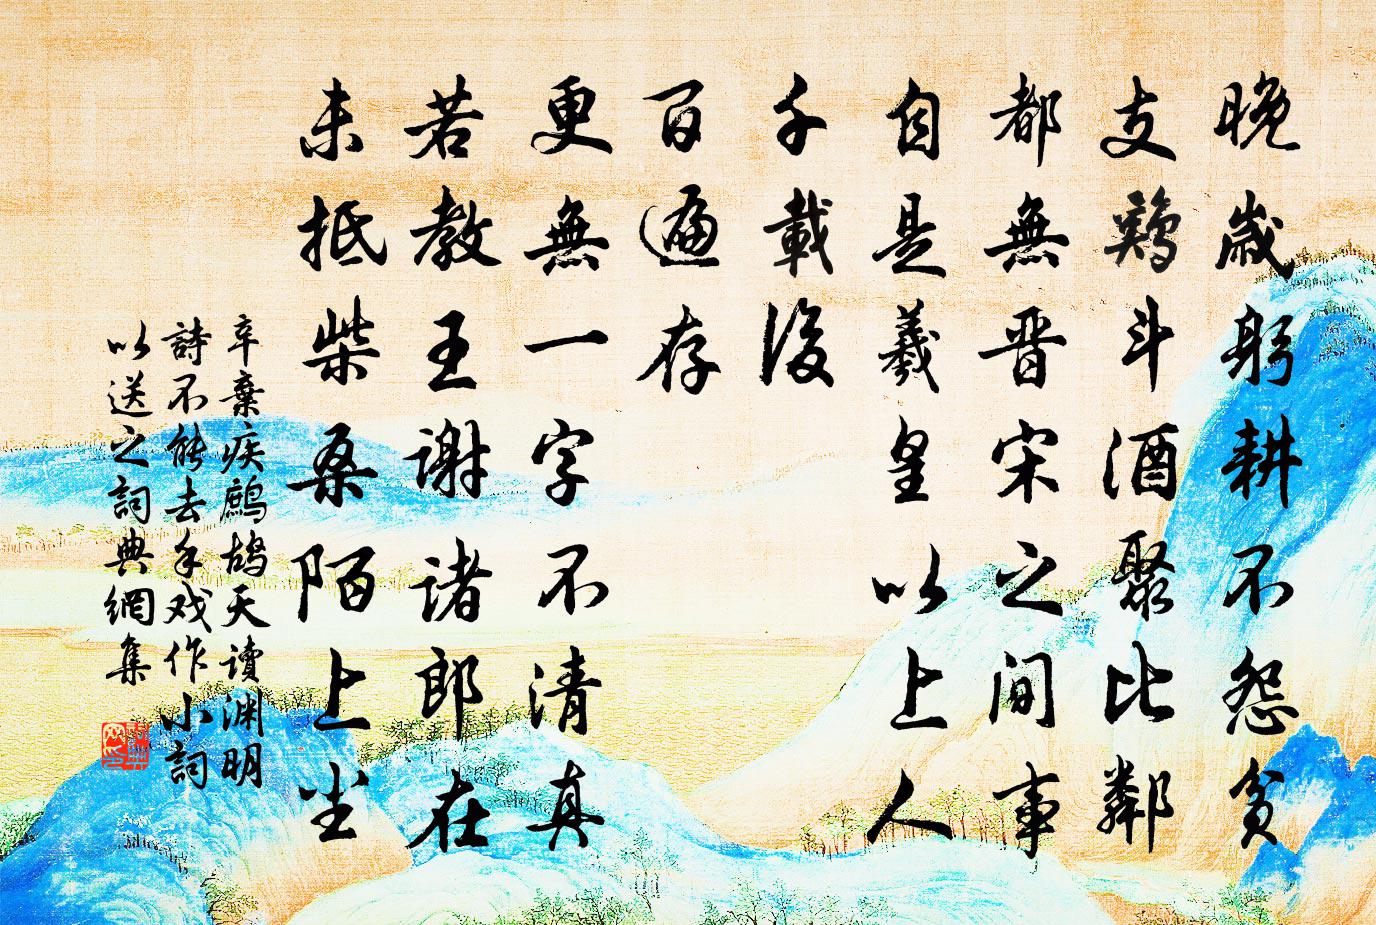 晚歲躬耕不怨貧
支鷄斗酒聚比鄰
都無晋宋之間事
自是羲皇以上人
千載後
百遍存
更無一字不清真
若教王謝诸郎在
未抵柴桑陌上尘
辛棄疾鷓鴣天讀渊明
詩不能去手戏作小詞
以送之詞典網集